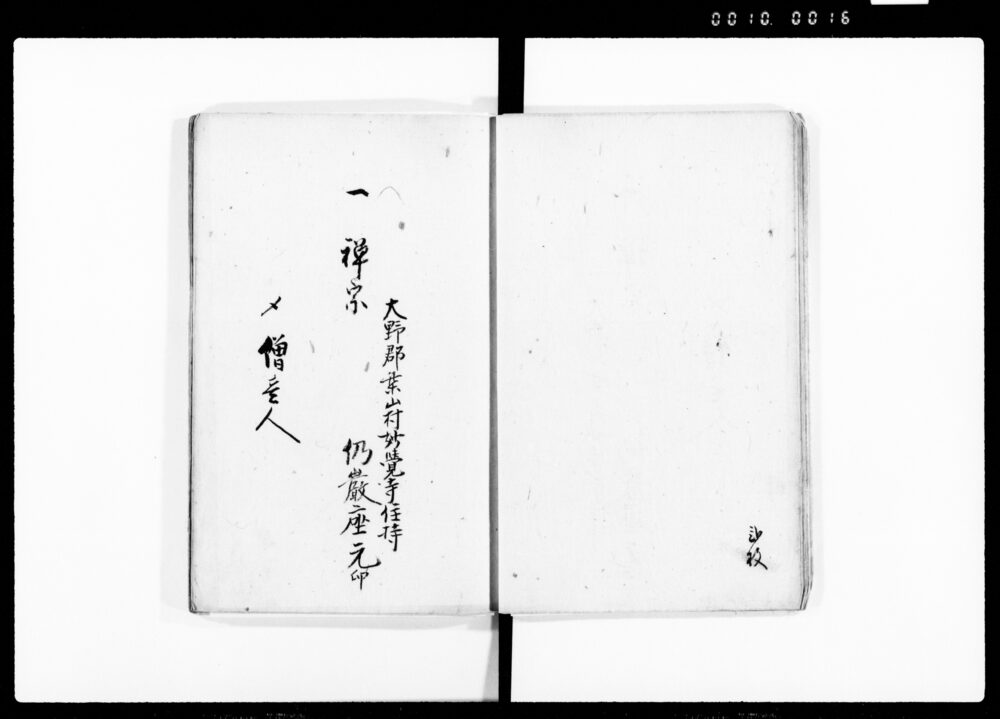 0010. 0016
弐枚
大野郡葉山村妙覺寺住持
一 禅宗 仍巖座元印
〆 僧壱人